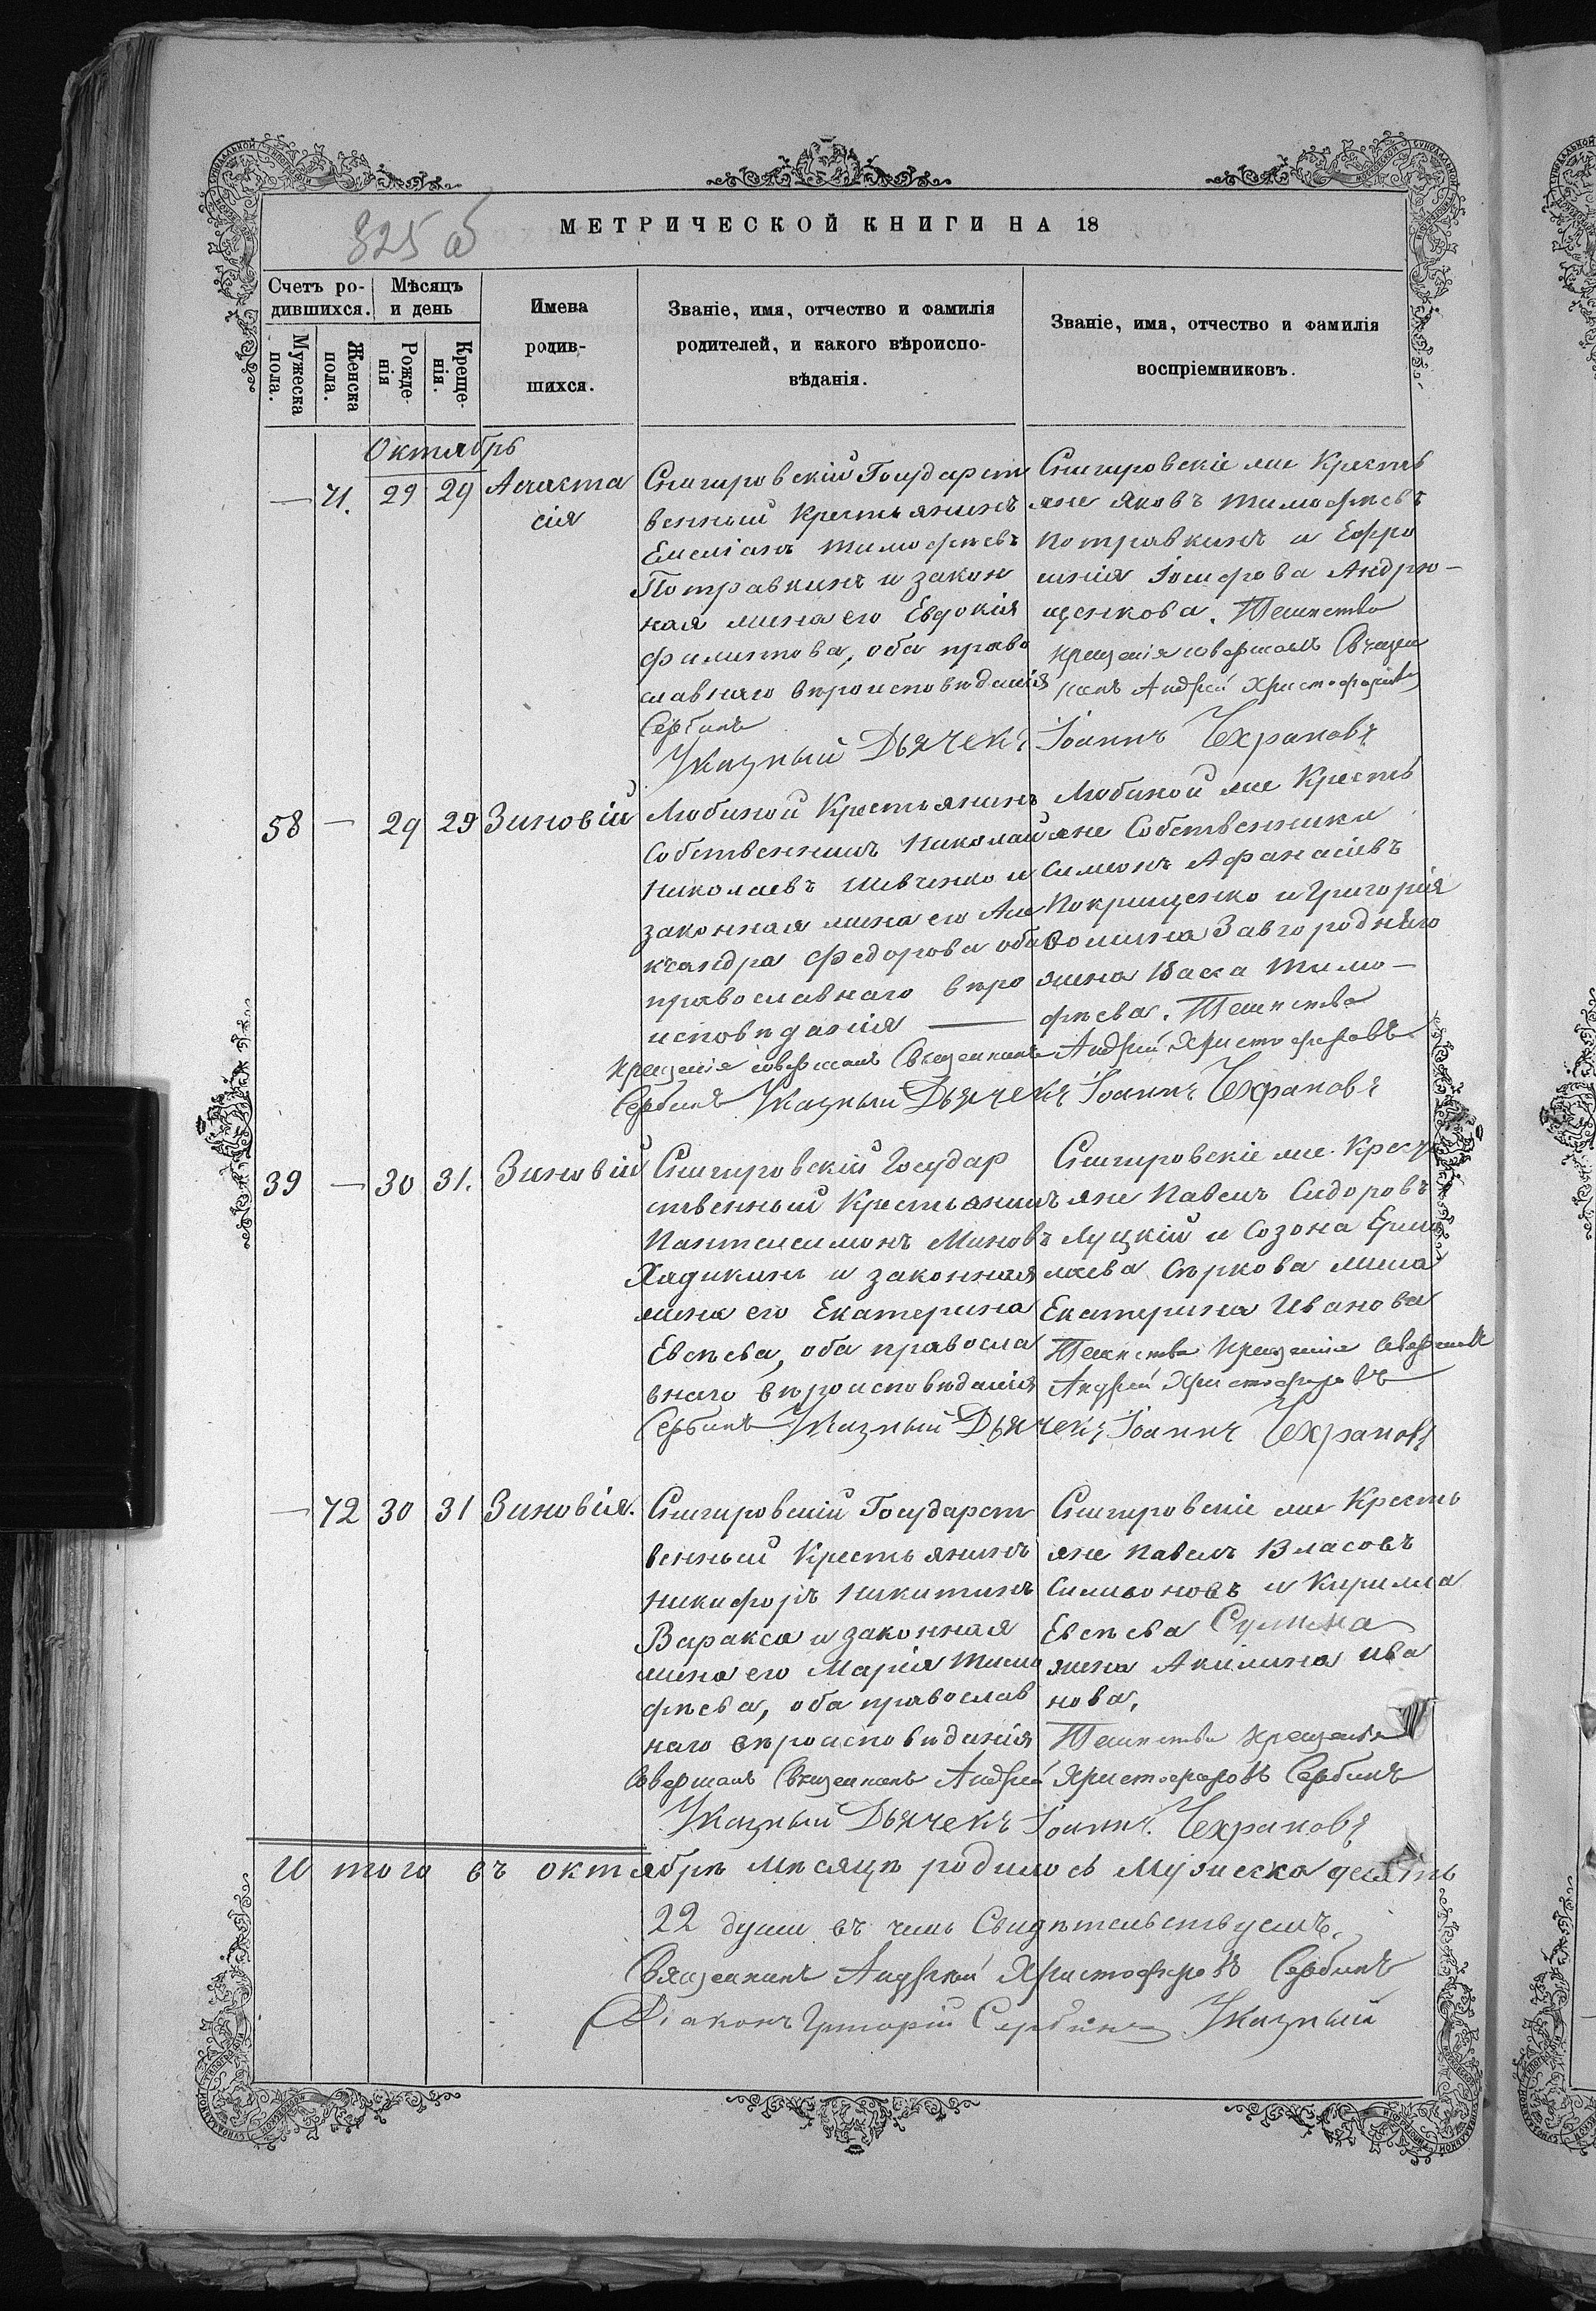 825 об
МЕТРИЧЕСКОЙ КНИГИ НА 18
Счетъ ро-
дившихся.
Мѣсяцъ
и день
Мужеска
пола.
Женска
пола.
Рожде-
нія
Креще-
нія.
Имена
родив-
шихся.
Званіе, имя, отчество и фамилія
родителей, и какого вѣроиспо-
вѣданія.
Званіе, имя, отчество и фамилія
воспріемниковъ.
Октябрь
— 71. 29 29 Анаста
сія
Снигировскій Государст
венный Крестьянинъ
Емеліанъ Тимофѣевъ
Потравкинъ и закон
ная жена его Евдокія
Филипова, оба право
славнаго вѣроисповѣданія
Снигировскіе же Кресть
яне Яковъ Тимофѣевъ
Потравкинъ и Ефро
синія Іосифова Андрю-
щенкова. Таинство
крещенія совершалъ Священ
никъ Андрей Христофоровъ
Сербинъ
Указный Дьячекъ Іоаннъ Чехрановъ
58 — 29 29 Зиновій
Любиной Крестьянинъ
Собственникъ Николай
Николаевъ Шевченко и
законная жена его Але
ксандра Федорова оба
православнаго вѣро
исповѣданія —
Любиной же Кресть
яне Собственники
Симеонъ Афанасіевъ
Покрищенко и Григорія
Фомина Завгородняго
жена Васса Тимо-
фѣева. Таинство
крещенія совершалъ Священникъ Андрей Христофоровъ
Сербинъ Указный Дьячекъ Іоаннъ Чехрановъ
39 — 30 31. Зиновій
Снигировскій Государ
ственный Крестьянинъ
Пантелеимонъ Миновъ
Хадикинъ и законная
жена его Екатерина
Евсѣева, оба правосла
внаго вѣроисповѣданія
Снигировскіе же Крест
яне Павелъ Сидоровъ
Луцкій и Созона Ермо
лаева Сѣркова жена
Екатерина Иванова
Таинство Крещенія совершалъ
Андрей Христофоровъ
Сербинъ Указный Дьячекъ Іоаннъ Чехрановъ
— 72 30 31 Зиновія.
Снигировскій Государст
венный Крестьянинъ
Никифоръ Никитинъ
Варакса и законная
жена его Марія Тимо
фѣева, оба православ
наго вѣроисповѣданія
Снигировскіе же Кресть
яне Павелъ Власовъ
Симеоновъ и Кирилла
Евсѣева
жена Акилина Ива
нова.
Таинство крещенія
совершалъ Священникъ Андрей Христофоровъ Сербинъ
Указный Дьячекъ Іоаннъ Чехрановъ
И того въ октябрѣ мѣсяцѣ родилось мужеска десять
22 души въ чемъ Свидѣтельствуемъ.
Священникъ Андрей Христофоровъ Сербинъ
Діаконъ Григорій Сербинъ Указный